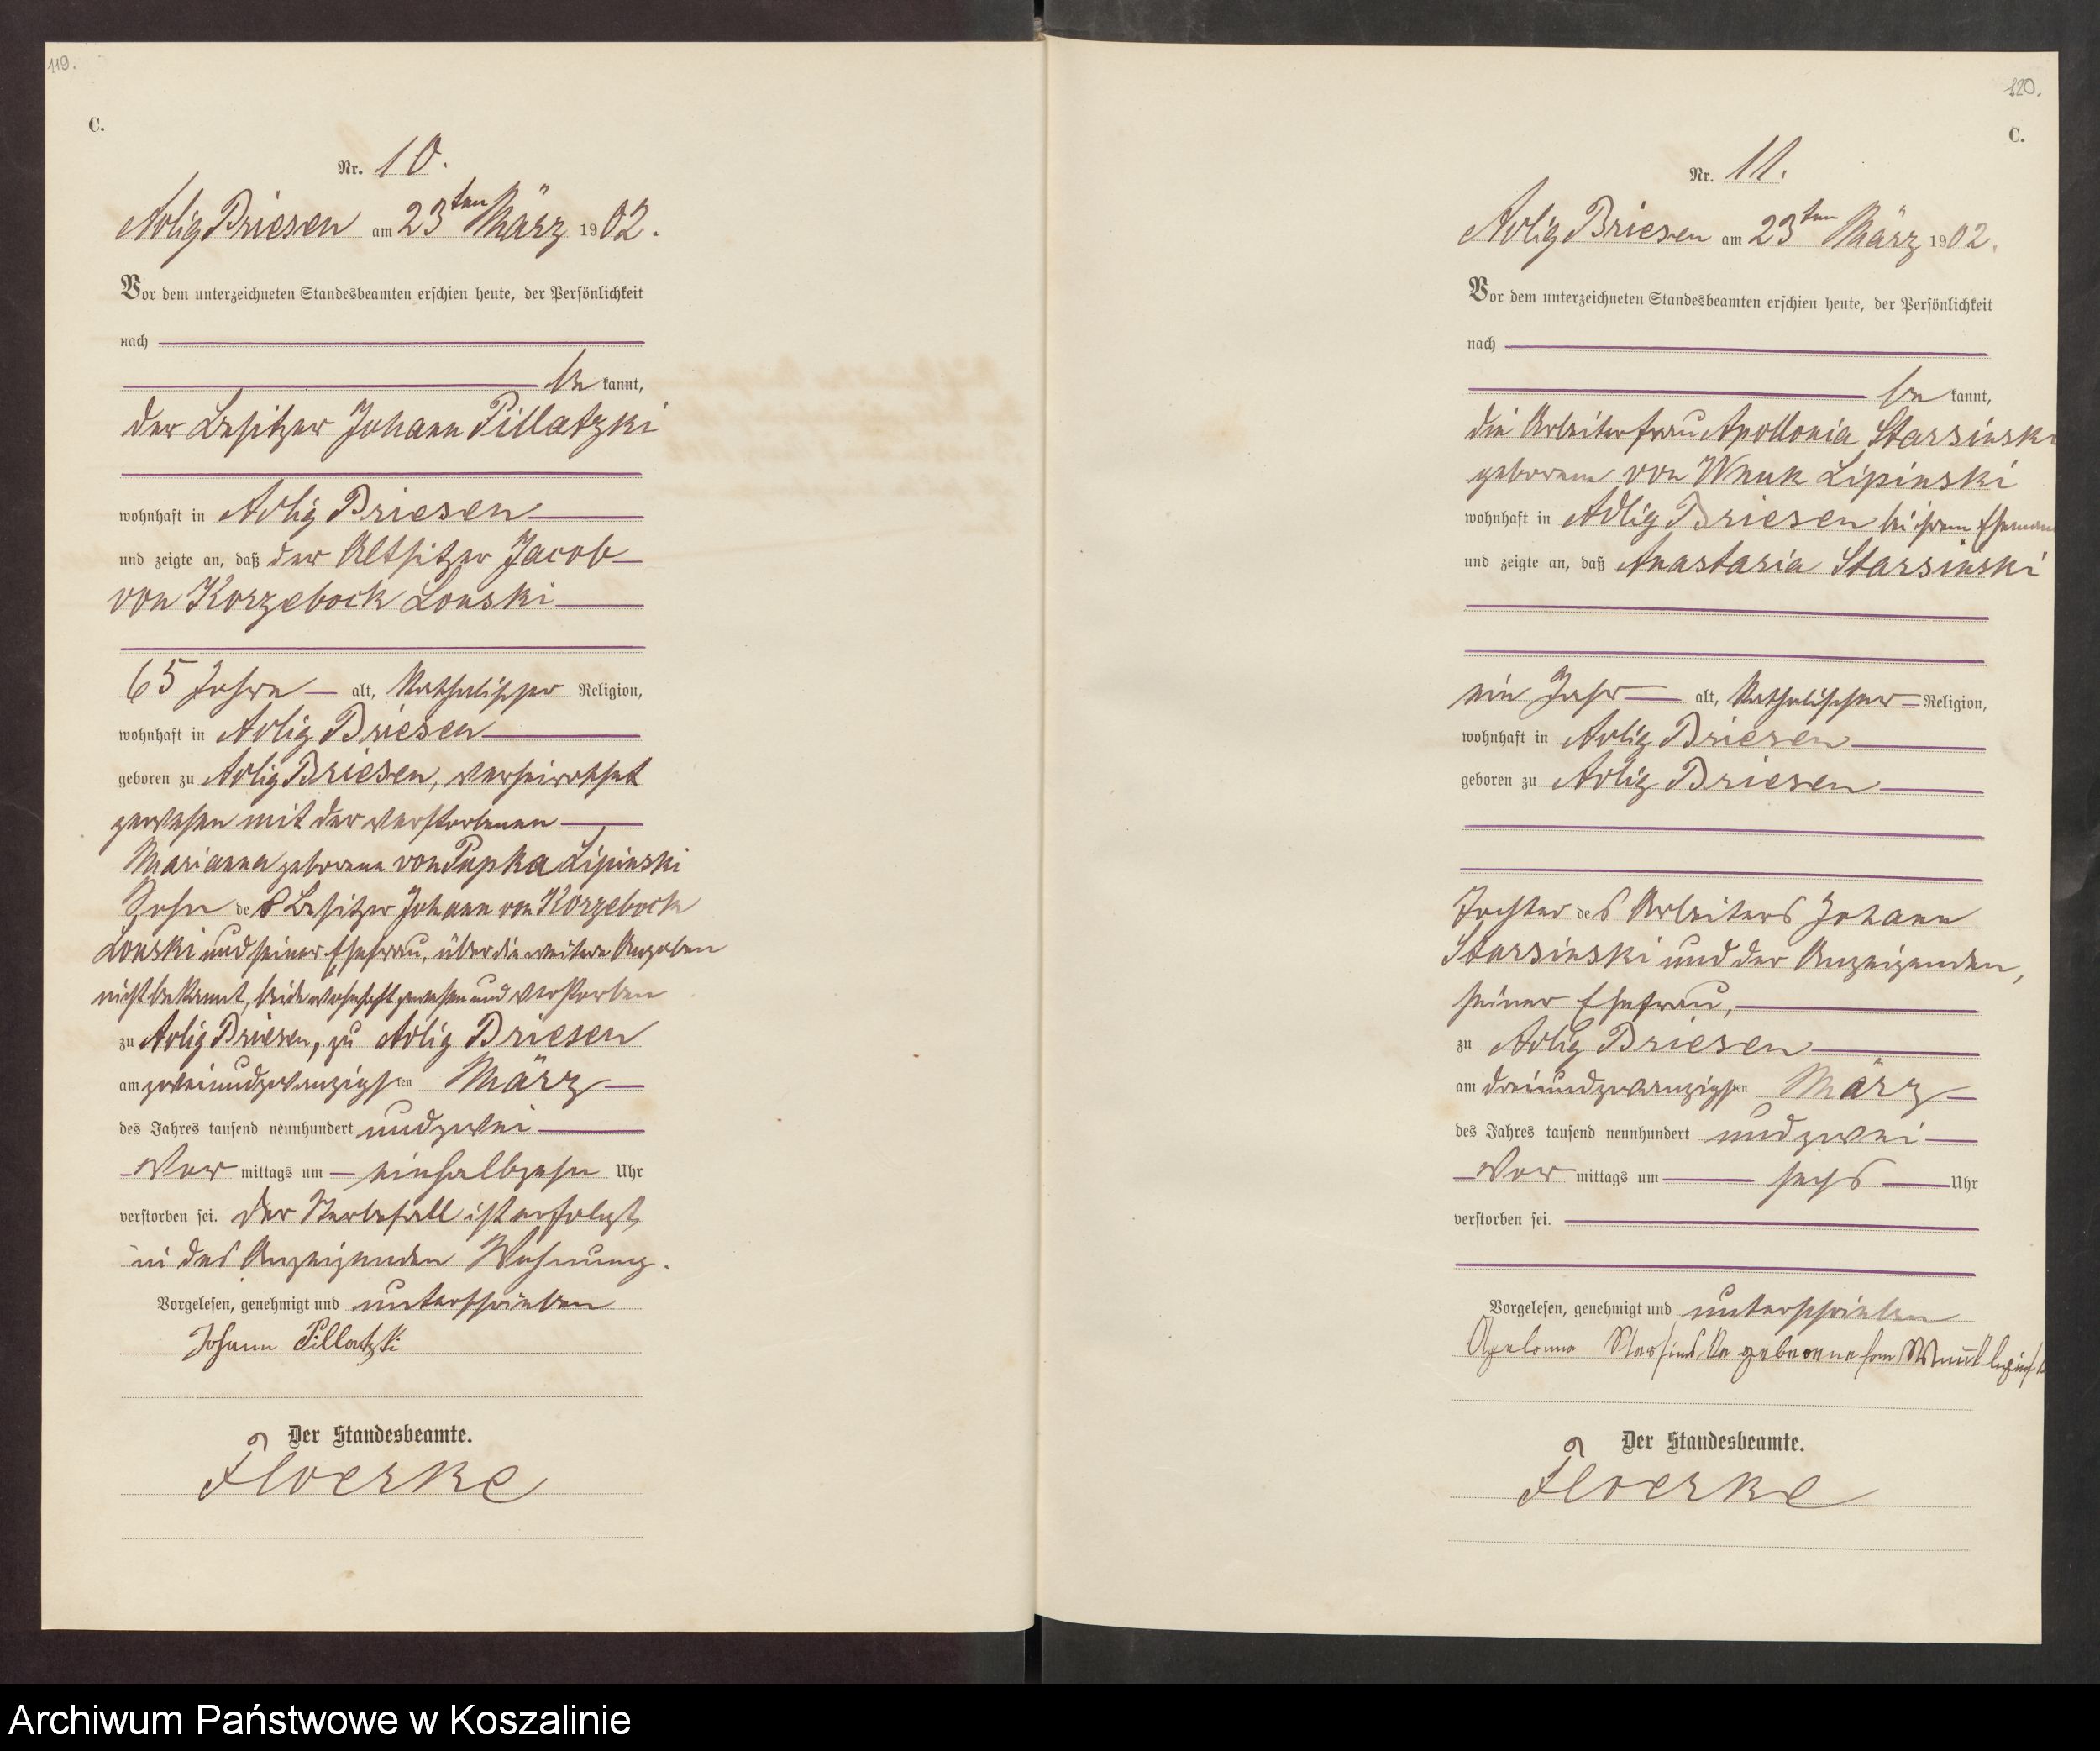 119.
C.
Nr. 10.
Adlig Briesen am 23ten März 1902.
Vor dem unterzeichneten Standesbeamten erschien heute, der Persönlichkeit
nach
be kannt,
der Besitzer Johann Pillatzki
wohnhaft in Adlig Briesen
und zeigte an, daß der Altsitzer Jacob
von Korzebock Lonski
65 Jahre alt, katholischer Religion,
wohnhaft in Adlig Briesen
geboren zu Adlig Briesen, verheirathet
gewesen mit der verstorbenen
Marianna geborene von Pupka Lipinski
Sohn des Besitzer Johann von Korzebock
Lonski und seiner Ehefrau, über die weitere Angaben
nicht bekannt, beide wohnhaft gewesen und verstorben
zu Adlig Briesen, zu Adlig Briesen
am zweiundzwanzigsten März
des Jahres tausend neunhundert und zwei
Vor mittags um einhalbzehn Uhr
verstorben sei. Der Sterbefall ist erfolgt
in des Anzeigenden Wohnung.
Vorgelesen, genehmigt und unterschrieben
Johann Pillatzki
Der Standesbeamte.
Floerke
120.
C.
Nr. 11.
Adlig Briesen am 23ten März 1902.
Vor dem unterzeichneten Standesbeamten erschien heute, der Persönlichkeit
nach
be kannt,
die Arbeiterfrau Apollonia Starsinski
geborene von Wnuk Lipinski
wohnhaft in Adlig Briesen bei ihrem Ehemann
und zeigte an, daß Anastasia Starsinski
ein Jahr alt, katholischer Religion,
wohnhaft in Adlig Briesen
geboren zu Adlig Briesen
Tochter des Arbeiters Johann
Starsinski und der Anzeigenden,
seiner Ehefrau,
zu Adlig Briesen
am dreiundzwanzigsten März
des Jahres tausend neunhundert und zwei
Vor mittags um sechs Uhr
verstorben sei.
Vorgelesen, genehmigt und unterschrieben
geborene
Der Standesbeamte.
Floerke
Archiwum Państwowe w Koszalinie